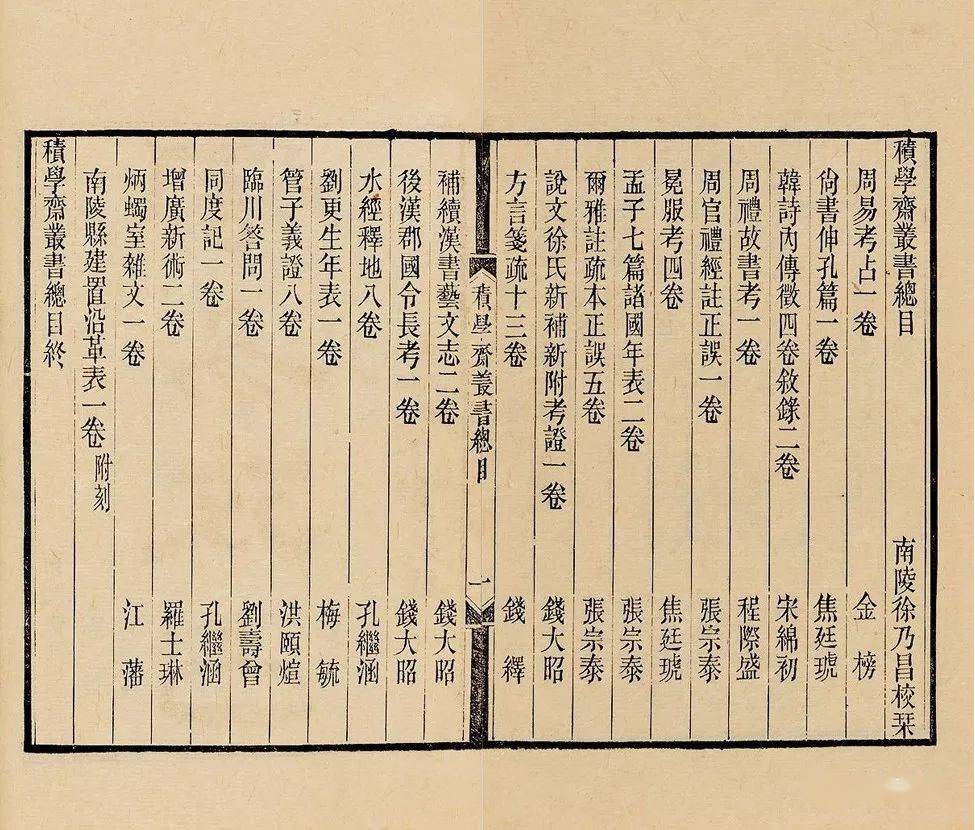 積學齋叢書總目
南陵徐乃昌校栞
周易考占一卷 金榜
尙書伸孔篇一卷 焦廷琥
韓詩內傳徵四卷敘錄二卷 宋綿初
周禮故書考一卷 程際盛
周官禮經註正誤一卷 張宗泰
冕服考四卷 焦廷琥
孟子七篇諸國年表二卷 張宗泰
爾雅註疏本正誤五卷 張宗泰
說文徐氏新補新附考證一卷 錢大昭
方言箋疏十三卷 錢繹
積學齋叢書總目 一
補續漢書藝文志二卷 錢大昭
後漢郡國令長考一卷 錢大昭
水經釋地八卷 孔繼涵
劉更生年表一卷 梅毓
管子義證八卷 洪頤煊
臨川答問一卷 劉壽曾
同度記一卷 孔繼涵
增廣新術二卷 羅士琳
炳蠋室雜文一卷 江藩
南陵縣建置沿革表一卷 附刻
積學齋叢書總目終